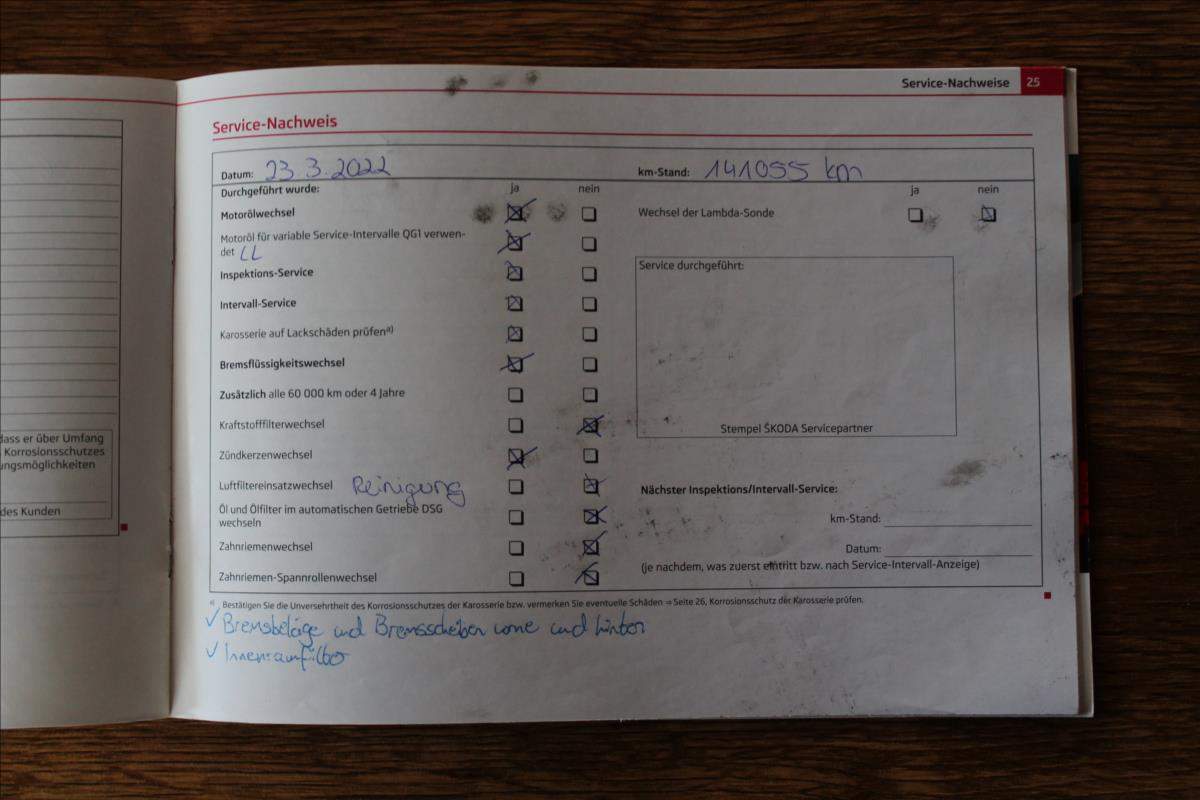 Service-Nachweise 25
Service-Nachweis
Datum: 23.3.2022
km-Stand: 141055 km
Durchgeführt wurde: ja nein
ja nein
Motorölwechsel
Wechsel der Lambda-Sonde
Motoröl für variable Service-Intervalle QG1 verwen-
det LL
Inspektions-Service
Service durchgeführt:
Intervall-Service
Karosserie auf Lackschäden prüfen a)
Bremsflüssigkeitswechsel
Zusätzlich alle 60 000 km oder 4 Jahre
Kraftstofffilterwechsel
Stempel ŠKODA Servicepartner
Zündkerzenwechsel
Luftfiltereinsatzwechsel Reinigung
Nächster Inspektions/Intervall-Service:
Öl und Ölfilter im automatischen Getriebe DSG
wechseln
km-Stand:
Zahnriemenwechsel
Datum:
(je nachdem, was zuerst eintritt bzw. nach Service-Intervall-Anzeige)
Zahnriemen-Spannrollenwechsel
a) Bestätigen Sie die Unversehrtheit des Korrosionsschutzes der Karosserie bzw. vermerken Sie eventuelle Schäden ⇒ Seite 26, Korrosionsschutz der Karosserie prüfen.
✓ Bremsbeläge und Bremsscheiben vorne und hinten
✓ Innenraumfilter
dass er über Umfang
Korrosionsschutzes
ungsmöglichkeiten
des Kunden